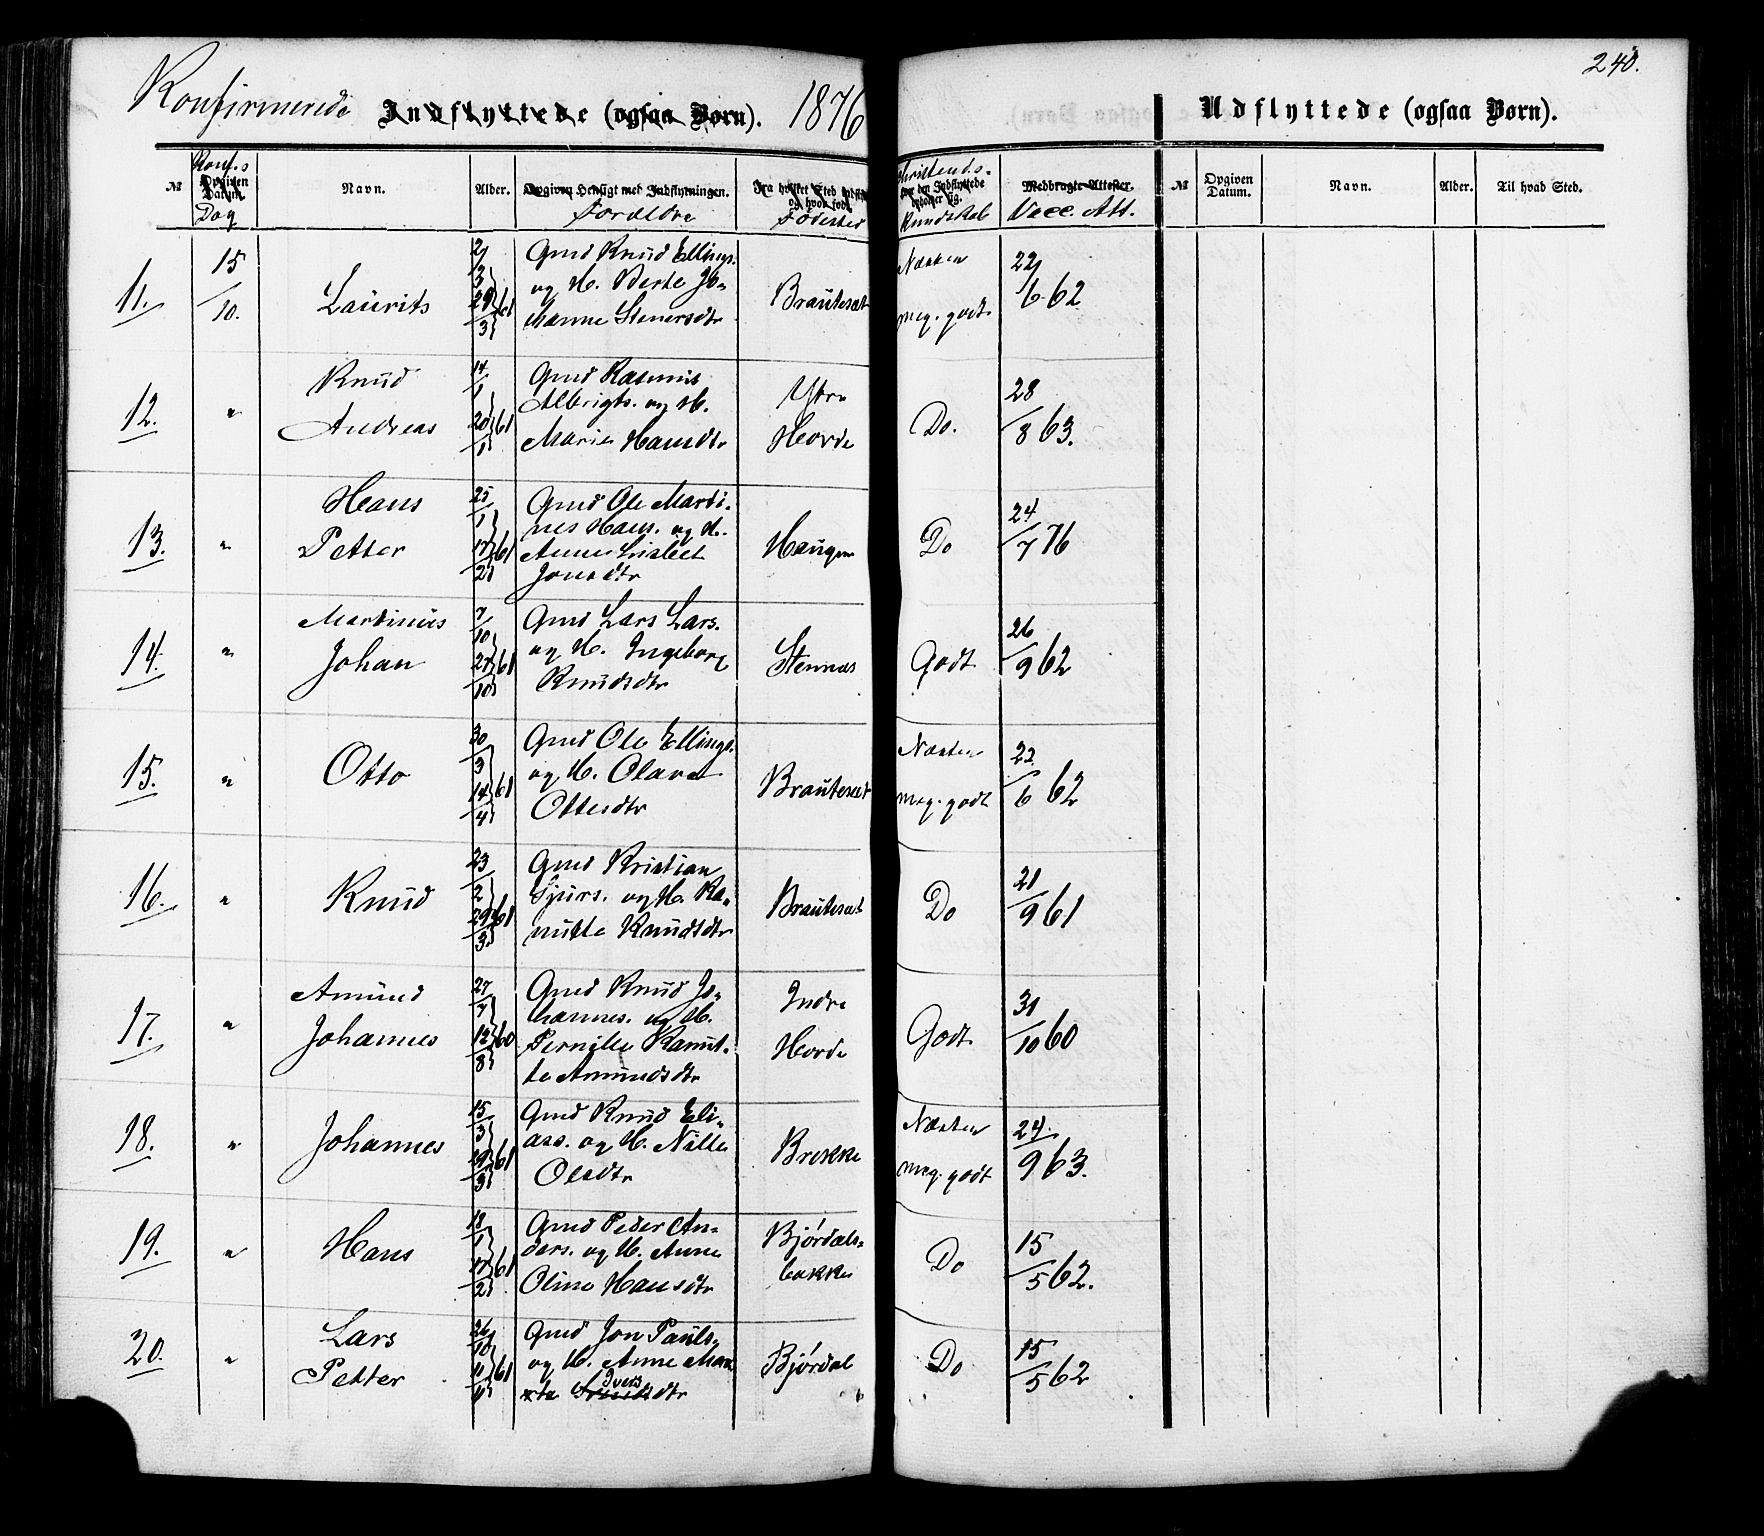 240.
Konfirmerede Indflyttede (ogsaa Børn). 1876
Udflyttede (ogsaa Børn).
№ Konf.s Opgiven Datum. Dag Navn. Alder. Opgiven Hensigt med Indflytningen. Forældre Fra hvilket Sted og hvor født. Fødested Christends. Kundskab Medbragte Attester. Vacc. Att.
№ Opgiven Datum. Navn. Alder. Til hvad Sted.
11. 15/10. Laurits 2/ 29/3 61 Gmd Knud Ellings. og H. Berte Johanne Stenersdtr Brautesæt Næsten meg. godt 22/6 62
12. " Knud Andreas 14/1 20/1 61 Gmd Rasmus Albrigts. og H. Marie Hansdtr Ytre Hovde Do. 28/8 63.
13. " Hans Petter 25/1 17/2 61 Gmd Ole Martines Hans. og H. Anne Lisbet Jonsdtr Haugen Do 24/7 76
14. " Martinus Johan 7/10 27/10 61 Gmd Lars Lars. og H. Ingeborg Knudsdtr Stennæs Godt 26/9 62
15. " Otto 30/3 14/4 61 Gmd Ole Ellings. og H. Olava Ottesdtr Brautesæt Næsten meg. godt 22/6 62
16. " Knud 23/2 29/3 61 Gmd Kristian Sjurs. og H. Ranutte Knudsdtr Brautesæt Do 21/9 61
17. " Amund Johannes 27/7 12/8 60 Gmd Knud Johannes. og H. Pernille Ranutte Amundsdtr Indre Hovde Godt 31/10 60
18. " Johannes 15/3 19/3 61 Gmd Knud Eliass. og H. Nille Olsdtr Brekke Næsten meg. godt 24/9 63.
19. " Hans 18/1 17/2 61 Gmd Peder Anders. og H. Anne Oline Hansdtr Bjørdalsbakke Do 15/5 62.
20. " Lars Petter 26/10 11/11 61 Gmd Jon Pauls. og H. Anne Marte Iversdtr Bjørdal Do 15/5 62